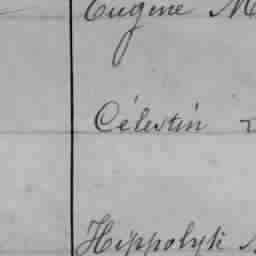 Eugene M
Célestin
Hippolyti